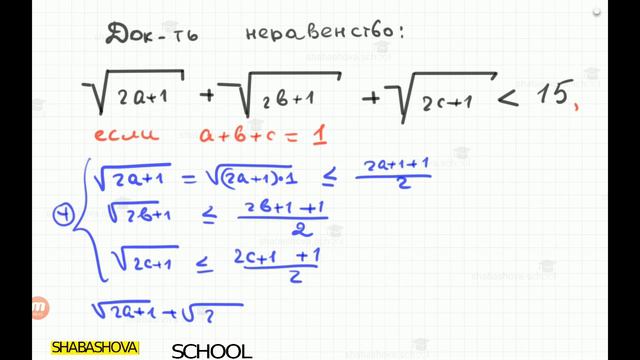 Док-ть неравенство:
√2a+1 + √2b+1 + √2c+1 < 15,
если a+b+c = 1
√2a+1 = √(2a+1)·1 ≤ 2a+1+1/2
√2b+1 ≤ 2b+1+1/2
√2c+1 ≤ 2c+1+1/2
√2a+1 + √2
SHABASHOVA SCHOOL
shabashova school